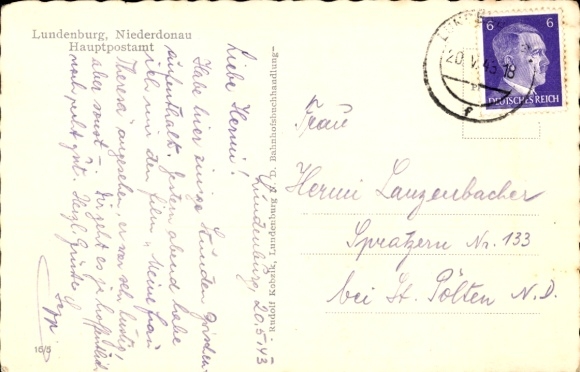 Lundenburg, Niederdonau
Hauptpostamt
Lundenburg, 20.5.43
Liebe Hermi!
Habe hier einige Stunden
aufenthalt. Gestern abend habe
ich mir den Film „Meine Frau
Theresa" angesehen, er war sehr lustig,
aber sonst – Dir geht es ja hoffentlich
noch recht gut. Herzl. Grüsse
Sepp
16/5
Rudolf Kobelk, Lundenburg N. D. Bahnhofsbuchhandlung
LUNDENBURG
20.V.43-18
f
6 6
DEUTSCHES REICH
Frau
Hermi Lanzenbacher
Spratzern Nr. 133
bei St. Pölten N.D.